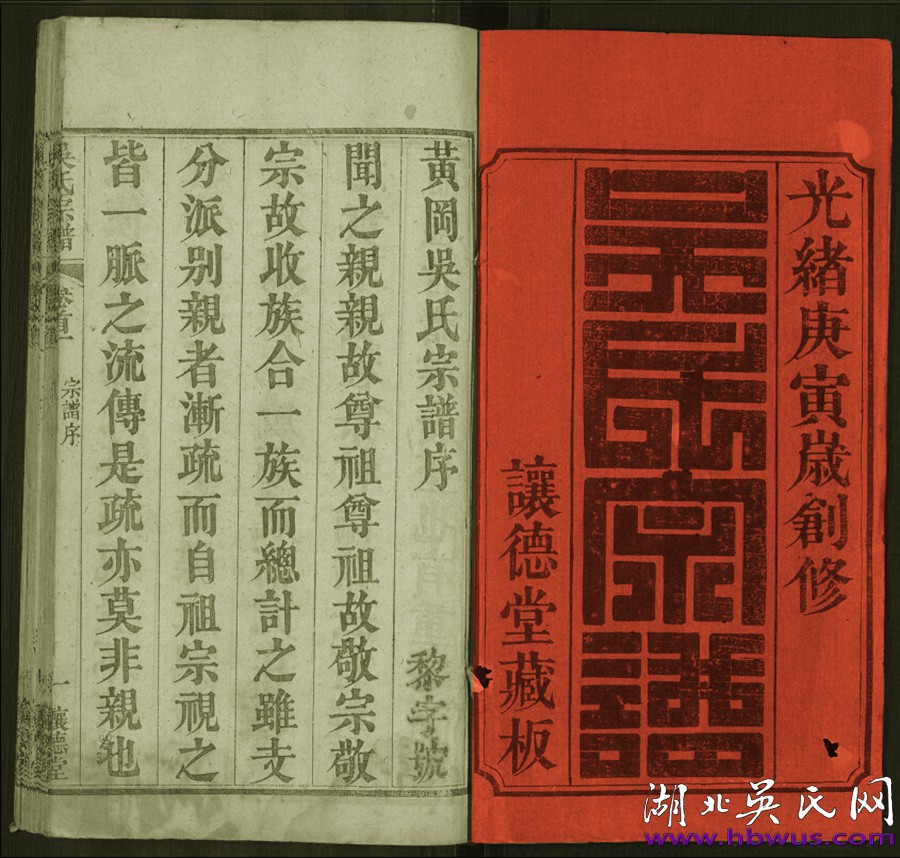 光緒庚寅歲創修
吳氏宗譜
讓德堂藏板
黃岡吳氏宗譜序
黎字號
聞之親親故尊祖尊祖故敬宗敬
宗故收族合一族而總計之雖支
分派别親者漸疏而自祖宗視之
皆一脈之流傳是疏亦莫非親也
吳氏宗譜
卷首
宗譜序
一
讓德堂
湖北吳氏网
www.hbwus.com